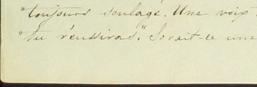 "toujours soulagé. Une voix
"tu réussiras". Serait-ce une